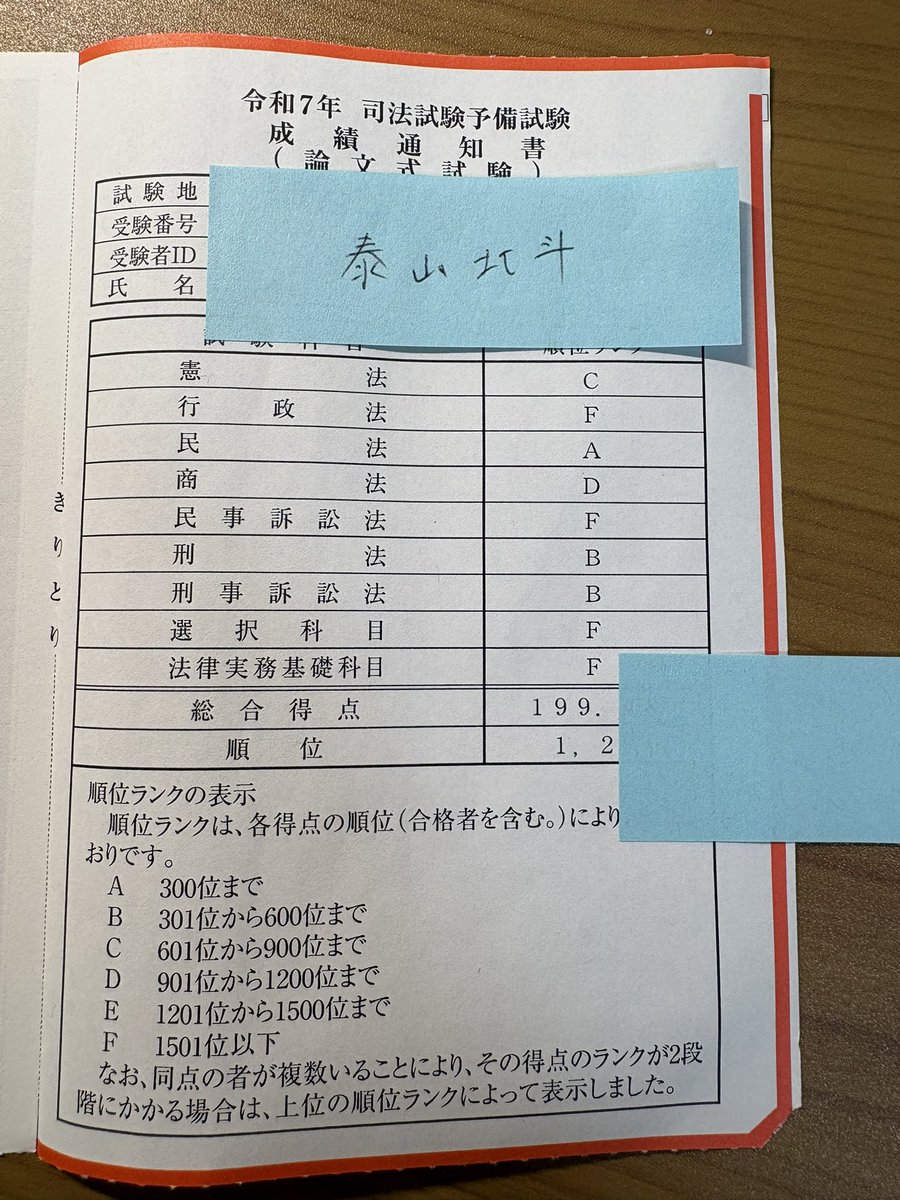 令和7年 司法試験予備試験
成績通知書
(論文式試験)
試験地
受験番号
泰山北斗
受験者ID
氏名
順位ランク
憲法 C
行政法 F
民法 A
商法 D
民事訴訟法 F
刑法 B
刑事訴訟法 B
選択科目 F
法律実務基礎科目 F
総合得点 199.
順位 1,2
きりとり
順位ランクの表示
順位ランクは、各得点の順位(合格者を含む。)により
おりです。
A 300位まで
B 301位から600位まで
C 601位から900位まで
D 901位から1200位まで
E 1201位から1500位まで
F 1501位以下
なお、同点の者が複数いることにより、その得点のランクが2段
階にかかる場合は、上位の順位ランクによって表示しました。